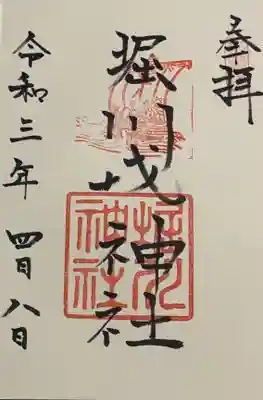 奉拝
堀川戎神社
令和三年 四月八日
堀川
神社